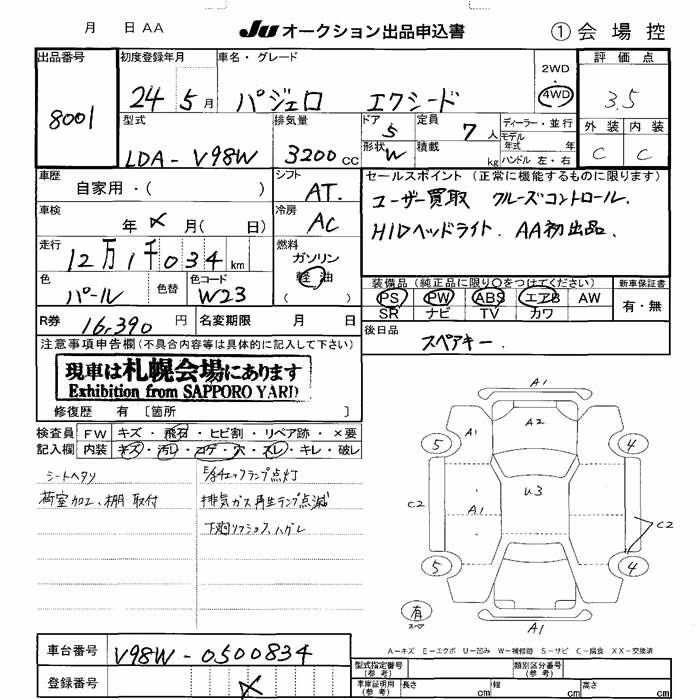 月 日 AA JU オークション出品申込書 ①会場控
出品番号 初度登録年月 車名・グレード 2WD ・ 4WD 評価点
8001 24 5月 パジェロ エクシード 3.5
型式 排気量 ドア 5 定員 7人 ディーラー・並行 外装 内装
LDA-V98W 3200cc 形状 W 積載 kg モデル年式 年 ハンドル 左・右 C C
車歴 シフト セールスポイント (正常に機能するものに限ります)
自家用・( ) AT. ユーザー買取 クルーズコントロール.
車検 冷房 HIDヘッドライト. AA初出品.
年 月( 日) AC
走行 燃料
12万1千034km ガソリン 軽油 ( )
装備品(純正品に限り○をつけてください) 新車保証書
色 色替 色コード PS PW ABS エアB AW 有・無
パール W23 SR ナビ TV カワ
R券 16,390円 名変期限 月 日 後日品
スペアキー.
注意事項申告欄(不具合内容等は具体的に記入して下さい)
現車は札幌会場にあります
Exhibition from SAPPORO YARD
修復歴 有〔箇所 〕
検査員 FW キズ・飛石・ヒビ割・リペア跡・×要
記入欄 内装 キズ・汚レ・コゲ・穴・スレ・キレ・破レ
シートヘタリ E/gチェックランプ点灯
荷室加工、棚取付 排気ガス再生ランプ点滅
下廻リフショク、ハガレ
A1
A1 A2
5 4
C2 A1 U3 C2
5 4
有 スペ A1
A-キズ E-エクボ U-凹み W-補修跡 S-サビ C-腐食 XX-交換済
車台番号 V98W-0500834
登録番号
型式指定番号(参考) 類別区分番号(参考)
車庫証明用(参考) 長さ cm 幅 cm 高さ cm